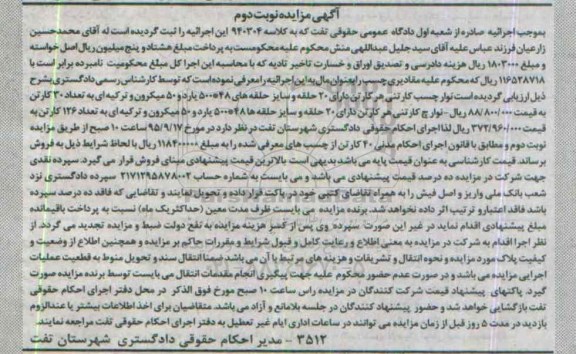 آگهی مزایده نوبت دوم
بموجب اجرائیه صادره از شعبه اول دادگاه عمومی حقوقی تفت که به کلاسه ۹۴۰۳۰۴ این اجرائیه را ثبت گردیده است له آقای محمدحسین
زارعیان فرزند عباس علیه آقای سید جلیل عبداللهی منش محکوم علیه محکومست به پرداخت مبلغ هشتاد و پنج میلیون ریال اصل خواسته
و مبلغ ۱۸۰۳۰۰۰ ریال هزینه دادرسی و تصدیق اوراق و خسارت تاخیر تادیه که با محاسبه این اجرا کل مبلغ محکومیت نامبرده برابر است با
۱۱۶۵۲۸۷۱۸ ریال که محکوم علیه مقادیری چسب را بعنوان مال به این اجرائیه را معرفی نموده است که توسط کارشناس رسمی دادگستری بشرح
ذیل ارزیابی گردیده است نوار چسب کارتنی هر کارتن دارای ۲۰ حلقه و سایز حلقه های ۴۸*۵۰۰ یارد و ۵۰ میکرون و ترکیه ای به تعداد ۳۰ کارتن
به قیمت ۸۸/۸۰۰/۰۰۰ ریال - نوار چ کارتنی هر کارتن دارای ۲۰ حلقه و سایز حلقه ها ۴۸*۵۰۰ یارد و ۵۰ میکرون و ترکیه ای به تعداد ۱۲۶ کارتن به
قیمت ۳۷۲/۹۶۰/۰۰۰ ریال لذا اجرای احکام حقوقی دادگستری شهرستان تفت در نظر دارد در مورخ ۹۵/۹/۱۷ ساعت ۱۰ صبح از طریق مزایده
نوبت دوم و مطابق با قانون اجرای احکام مدنی ۴۰ کارتن از چسب های معرفی شده را به مبلغ ۱۱۸۴۰۰۰۰۰ ریال با لحاظ شرایط ذیل به فروش
برساند. قیمت کارشناسی به عنوان قیمت پایه می باشد بدیهی است بالاترین قیمت پیشنهادی مبنای فروش قرار می گیرد. سپرده نقدی
جهت شرکت در مزایده ده درصد قیمت پیشنهادی می باشد و می بایست به شماره حساب ۲۱۷۱۲۹۵۸۷۸۰۰۲ سپرده دادگستری نزد
شعب بانک ملی واریز و اصل فیش را به همراه تقاضای کتبی خود در پاکت قرار داده و تحویل نمایند و تقاضایی که فاقد ده درصد سپرده
باشد فاقد اعتبار و ترتیب اثر داده نخواهد شد. برنده مزایده می بایست ظرف مدت معین (حداکثر یک ماه) نسبت به پرداخت باقیمانده
مبلغ پیشنهادی اقدام نماید در غیر این صورت سپرده وی پس از کسر هزینه مزایده به نفع دولت ضبط و مزایده تجدید می گردد. از
نظر اجرا اقدام به شرکت در مزایده به معنی اطلاع و رعایت کامل و قبول شرایط و مقررات حاکم بر مزایده و همچنین اطلاع از وضعیت و
کیفیت پلاک مورد مزایده و نحوه انتقال و تشریفات و هزینه های مرتبط با آن می باشد. ضمنا انتقال سند و تحویل منوط به قطعیت عملیات
اجرایی مزایده می باشد و در صورت عدم حضور محکوم علیه جهت پیگیری انجام مقدمات انتقال می بایست توسط برنده مزایده صورت
گیرد. پاکتهای پیشنهاد قیمت شرکت کنندگان در مزایده راس ساعت ۱۰ صبح مورخ فوق الذکر در محل دفتر اجرای احکام حقوقی
تفت بازگشایی خواهد شد و حضور پیشنهاد کنندگان در جلسه بلامانع و آزاد می باشد. متقاضیان برای اخذ اطلاعات بیشتر یا عنداللزوم
بازدید در مدت ۵ روز قبل از زمان مزایده می توانند در ساعات اداری ایام غیر تعطیل به دفتر اجرای احکام حقوقی تفت مراجعه نمایند.
۳۵۱۲ - مدیر احکام حقوقی دادگستری شهرستان تفت